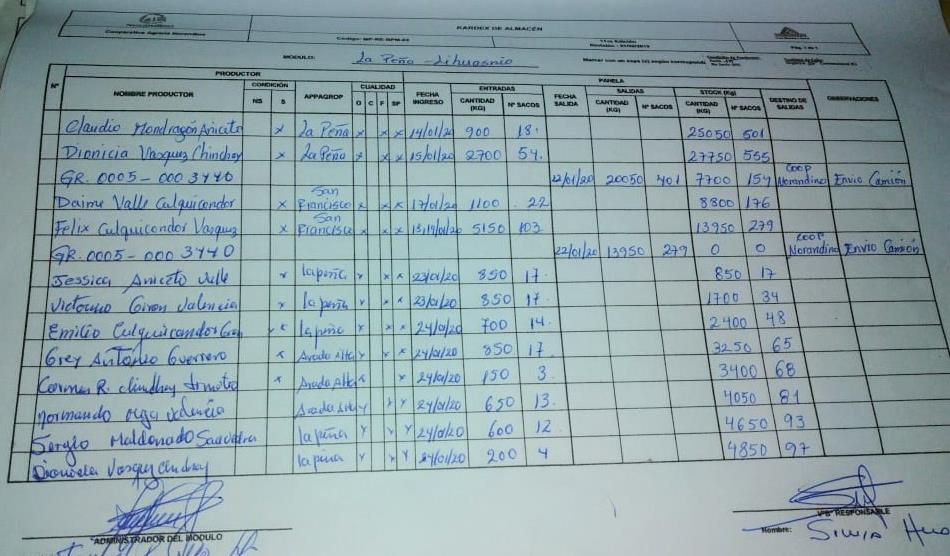 Cooperativa Agraria Norandino
KARDEX DE ALMACÉN
Pág. 1 de 1
MÓDULO: La Peña - Lihuasnio
Marcar con un aspa (x) según corresponda
PRODUCTOR PANELA
N° NOMBRE PRODUCTOR CONDICIÓN NS S APPAGROP CUALIDAD O C F SP FECHA INGRESO ENTRADAS CANTIDAD (KG) N° SACOS FECHA SALIDA SALIDAS CANTIDAD (KG) N° SACOS STOCK (Kg) CANTIDAD (KG) N° SACOS DESTINO DE SALIDAS OBSERVACIONES
Claudio Mondragon Aniceto x La Peña x x x 14/01/20 900 18. 25050 501
Dionicia Vasquez Chinchay x La Peña x x x 15/01/20 2700 54. 27750 555
GR. 0005-000 3440 22/01/20 20050 401 7700 154 COOP Norandino Envio Camión
Daime Valle Culquicondor x San Francisco x x x 17/01/20 1100 22 8800 176
Felix Culquicondor Vasquez x San Francisco x x x 103 5150 13950 279
GR. 0005-000 3440 22/01/20 13950 279 0 0 COOP Norandino Envio Camión
Jessica Aniceto Valle x la peña x x x 23/01/20 850 17. 850 17
Victorino Giron Valencia x la peña x x x 23/01/20 850 17. 1700 34
Emilio Culquicondor x la peña x x x 24/01/20 700 14. 2400 48
Grey Antonio Guerrero x Arada Alta x x x 24/01/20 850 17 3250 65
Carmen R. x Arada Alta x x 24/01/20 150 3. 3400 68
Normando Valencia Arada Alta 24/01/20 650 13. 4050 81
Sergio Maldonado Saavedra la peña 24/01/20 600 12 4650 93
Vasquez Chinchay la peña 24/01/20 200 4 4850 97
ADMINISTRADOR DEL MÓDULO
V°B° RESPONSABLE
Nombre: Silvia